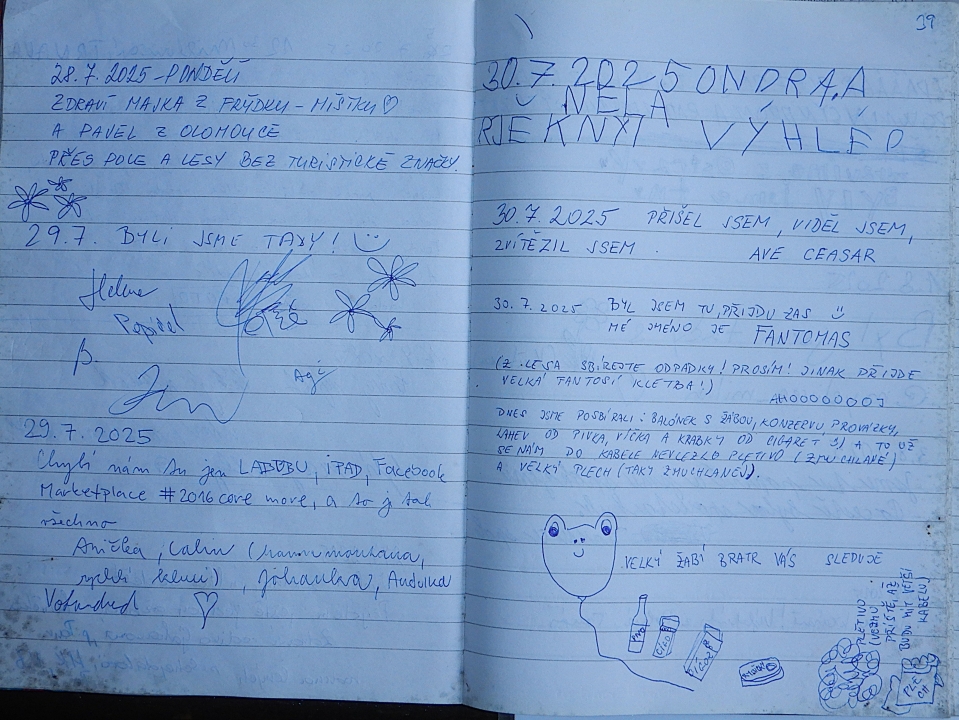 28.7.2025-PONDĚLÍ
ZDRAVÍ MAJKA Z FRÝDKU-MÍSTKU♡
A PAVEL Z OLOMOUCE
PŘES POLE A LESY BEZ TURISTICKÉ ZNAČKY.
29.7. BYLI JSME TADY! :)
Helena
29.7.2025
Chybí nám tu jen LABUBU, iPAD, Facebook
Marketplace #2016core move, a to je tak
všechno
Anička, Calin
Johanka,
♡
39
30.7.2025 ONDRA, A
NELA
JE KNYT VÝHLED
30.7.2025 PŘIŠEL JSEM, VIDĚL JSEM,
ZVÍTĚZIL JSEM. AVE CEASAR
30.7.2025 BYL JSEM TU, PŘIJDU ZAS
MÉ JMÉNO JE FANTOMAS
(Z LESA SBÍREJTE ODPADKY! PROSÍM! JINAK PŘIJDE
VELKÁ FANTOSÍ KLETBA!)
AHOOOOOOJ
DNES JSME POSBÍRALI: BALÓNEK S ŽÁBOU, KONZERVU, PROVÁZKY,
LAHEV OD PIVKA, VÍČKA A KRABKY OD CIGARET :) A TO UŽ
SE NÁM DO KABELE NEVLEZLO PLETIVO (ZMUCHLANÉ)
A VELKÝ PLECH (TAKY ZMUCHLANEJ).
VELKÝ ŽABÍ BRATR VÁS SLEDUJE
PIVO
CIGO
CIGO
PLETIVO
(VEZMU
PŘÍŠTĚ, AŽ
BUDU MÍT VĚTŠÍ
KABELU)
PLE
CH